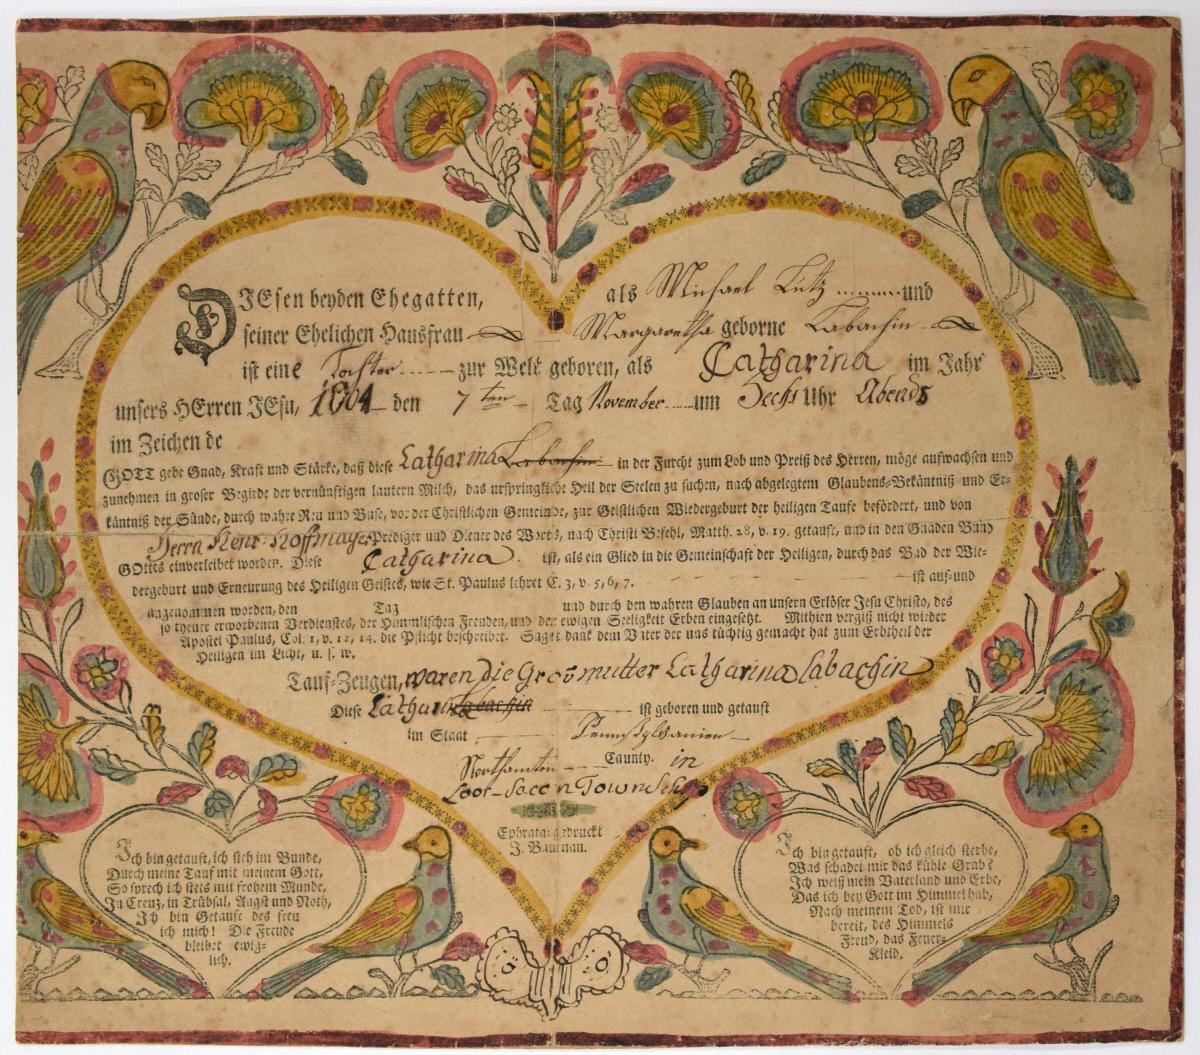 DIEsen beyden Ehegatten, als Michael Lutz und
seiner Ehelichen Hausfrau Margaretha geborne Labachin
ist eine Tochter zur Welt geboren, als Catharina im Jahr
unsers HErren JEsu, 1804 den 7ten Tag November um Sechs Uhr Abends
im Zeichen de
GOTT gebe Gnad, Kraft und Stärke, daß diese Catharina Labachin in der Furcht zum Lob und Preiß des Herren, möge aufwachsen und
zunehmen in groser Begirde der vernünftigen lautern Milch, das urspringliche Heil der Seelen zu suchen, nach abgelegtem Glaubens-Bekäntniß und Er-
käntniß der Sünde, durch wahre Reu und Buse, vor der Christlichen Gemeinde, zur Geistlichen Wiedergeburt der heiligen Taufe befördert, und von
Herrn Hoffmayer Prediger und Diener des Worts, nach Christi Befehl, Matth. 28, v. 19. getauft, und in den Gnaden Bund
GOttes einverleibet worden. Diese Catharina ist, als ein Glied in die Gemeinschaft der Heiligen, durch das Bad der Wie-
dergeburt und Erneurung des Heiligen Geistes, wie St. Paulus lehret C. 3, v. 5, 6, 7. ist auf-und
angenommen worden, den Tag und durch den wahren Glauben an unsern Erlöser Jesu Christo, des
so theuer erworbenen Verdienstes, der Himmlischen Freuden, und der ewigen Seeligkeit Erben eingesetzt. Mithien vergiß nicht wieder
Apostel Paulus, Col. 1, v. 12, 14. die Pflicht beschreibet. Saget dank dem Vater der uns tüchtig gemacht hat zum Erbtheil der
Heiligen im Licht, u. s. w.
Tauf-Zeugen, waren die Grosmutter Catharina Labachin
Diese Catharina Labachin ist geboren und getauft
im Staat Pennsylvanien
Northamton Caunty. in
Loor-Sacon Townschip
Ephrata: gedruckt
J. Bauman.
Ich bin getauft, ich steh im Bunde,
Durch meine Tauf mit meinem Gott,
So sprech ich stets mit frohem Munde,
In Creuz, in Trübsal, Angst und Noth,
Ich bin Getauft des freu
ich mich! Die Freude
bleibet ewig-
lich.
Ich bin getauft, ob ich gleich sterbe,
Was schadet mir das kühle Grab?
Ich weiß mein Vaterland und Erbe,
Das ich bey Gott im Himmel hab,
Nach meinem Tod, ist mir
bereit, des Himmels
Freud, das Feuer-
Kleid.